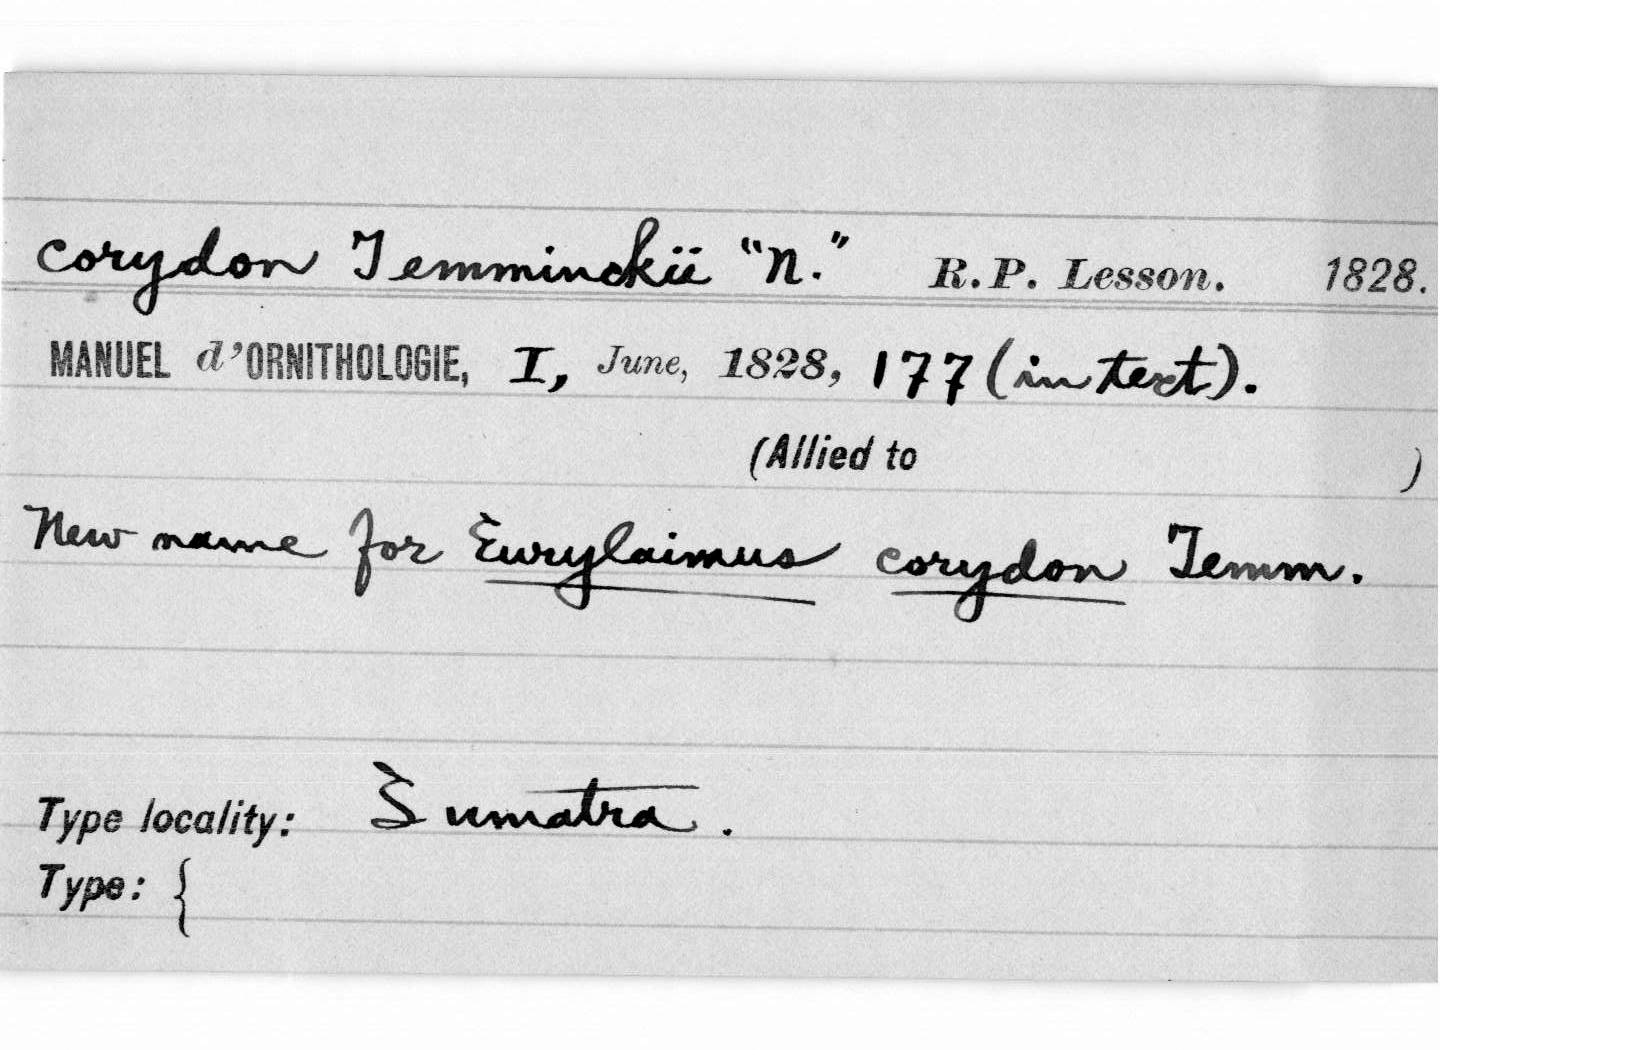 corydon Temminckii "N." R.P. Lesson. 1828.
MANUEL d'ORNITHOLOGIE, I, June, 1828, 177 (in text).
(Allied to )
New name for Eurylaimus corydon Temm.
Type locality: Sumatra.
Type: {